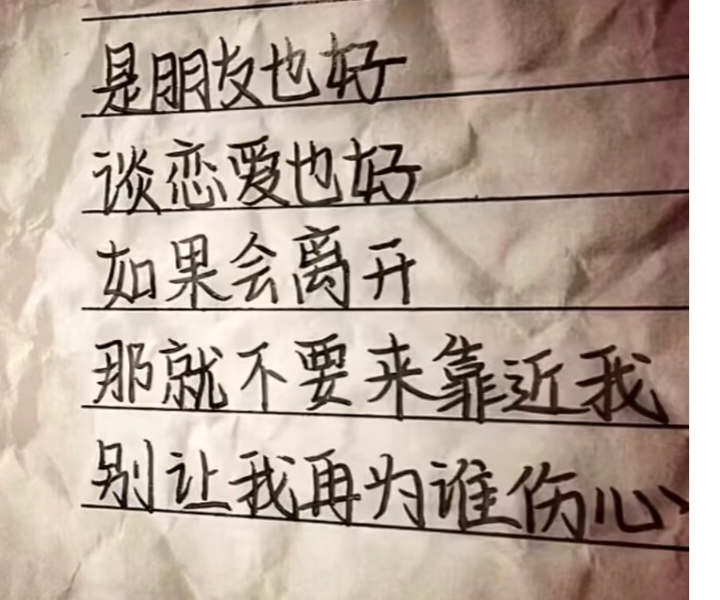 是朋友也好
谈恋爱也好
如果会离开
那就不要来靠近我
别让我再为谁伤心